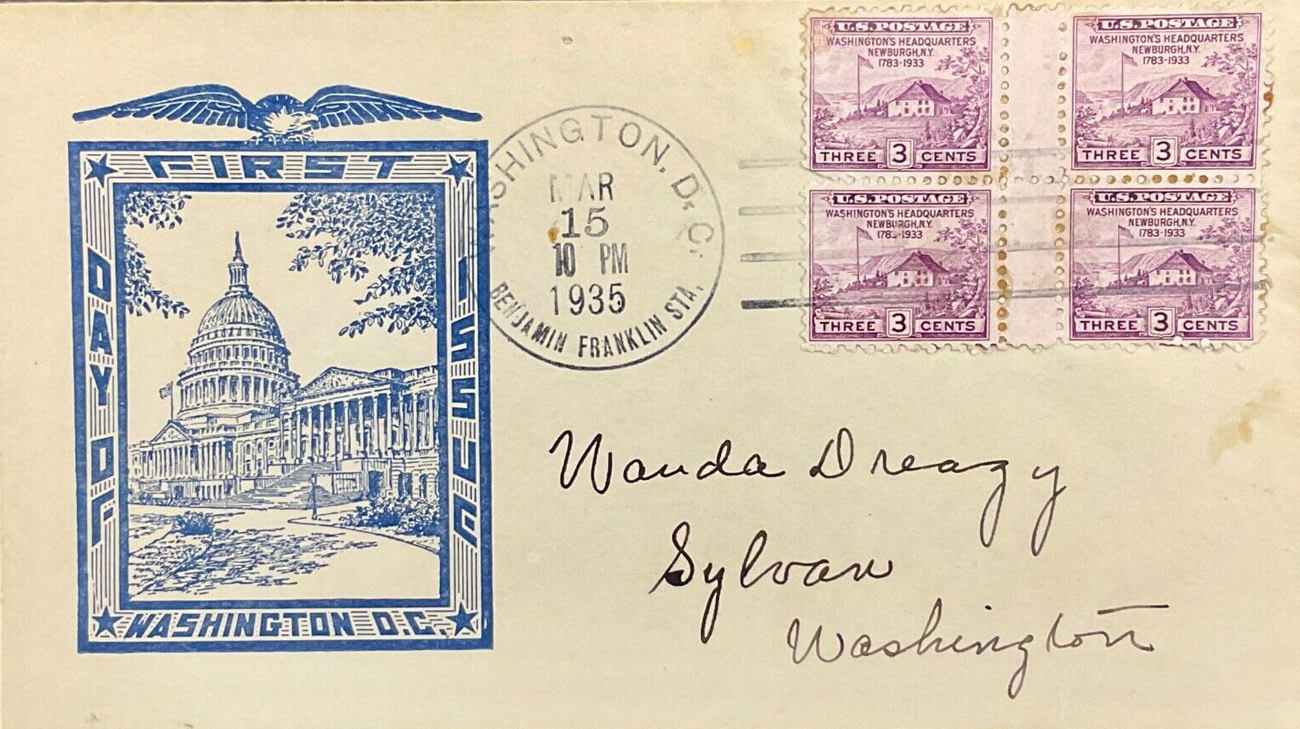 FIRST
DAY OF
ISSUE
WASHINGTON D.C.
WASHINGTON, D.C.
MAR
15
10 PM
1935
BENJAMIN FRANKLIN STA.
U.S. POSTAGE
WASHINGTON'S HEADQUARTERS
NEWBURGH, N.Y.
1783-1933
THREE 3 CENTS
U.S. POSTAGE
WASHINGTON'S HEADQUARTERS
NEWBURGH, N.Y.
1783-1933
THREE 3 CENTS
U.S. POSTAGE
WASHINGTON'S HEADQUARTERS
NEWBURGH, N.Y.
1783-1933
THREE 3 CENTS
U.S. POSTAGE
WASHINGTON'S HEADQUARTERS
NEWBURGH, N.Y.
1783-1933
THREE 3 CENTS
Wanda Dreazy
Sylvan
Washington